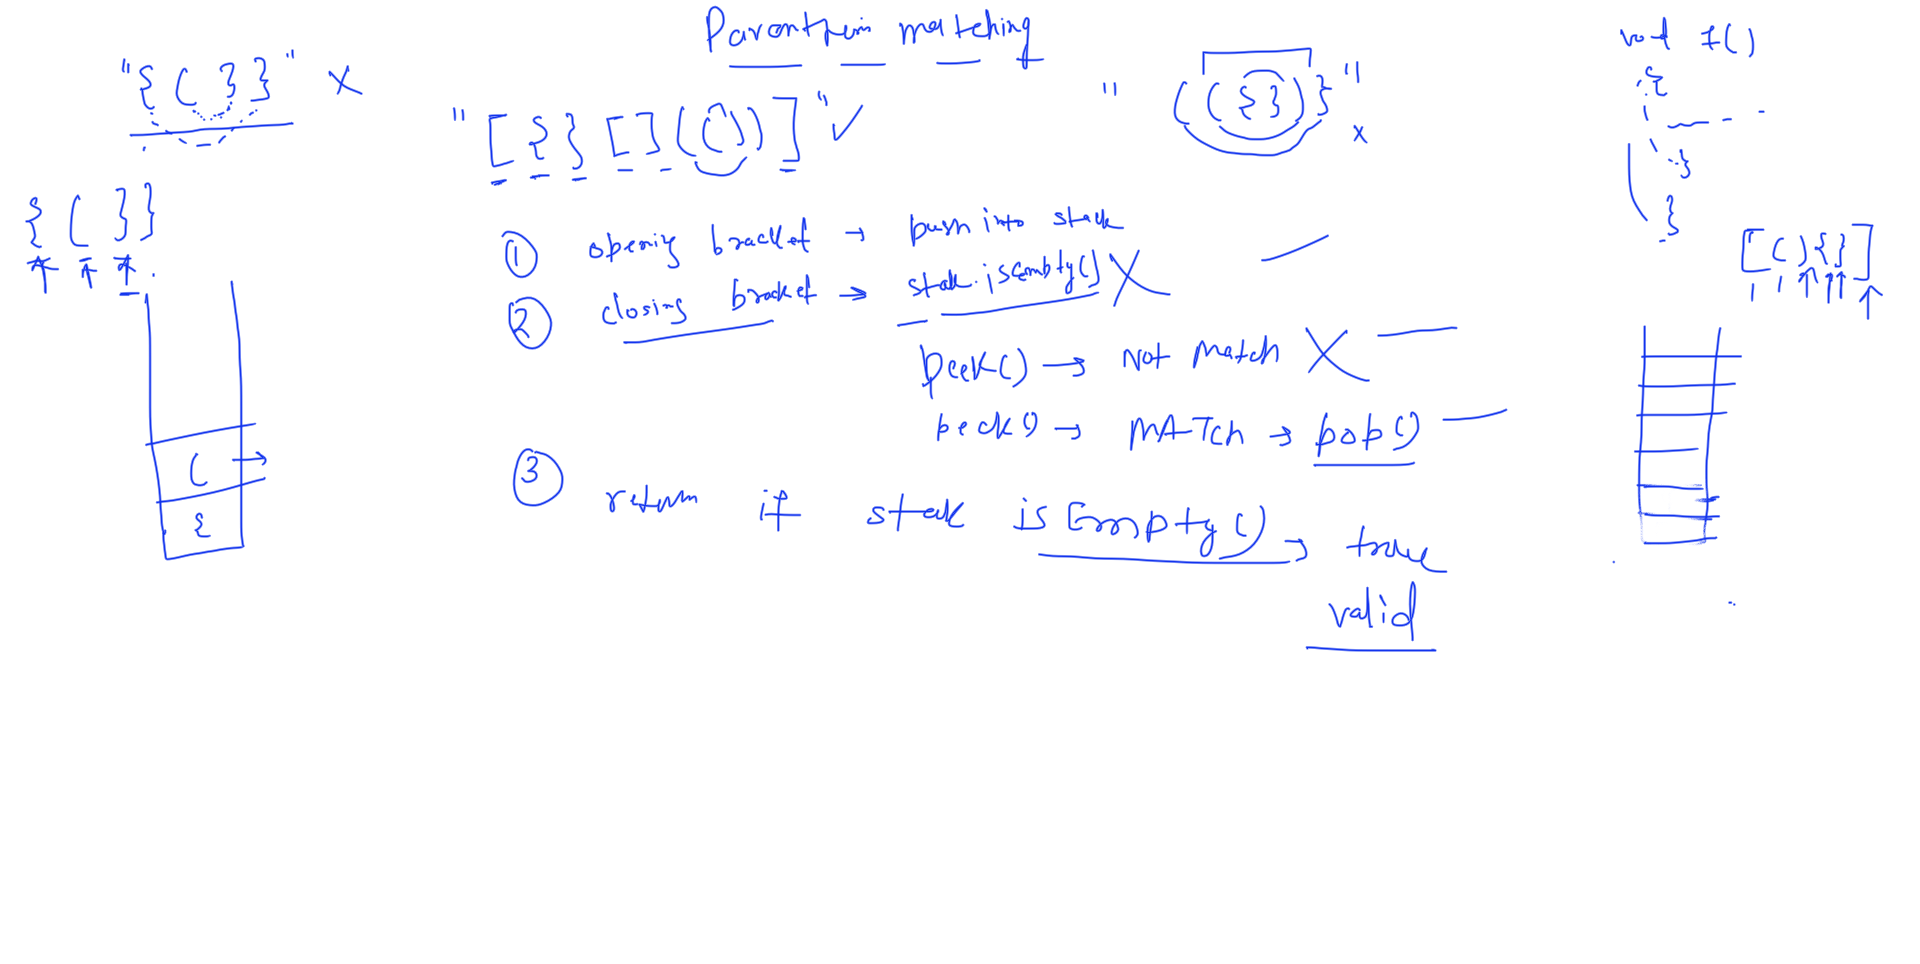 Parenthesis matching
"{ ( } }" X
"[ { } [ ] ( ( ) ) ]" ✓
" ( ( { } ) } " x
void f()
{
}
}
{ ( } }
① opening bracket → push into stack
② closing bracket → stack.isEmpty() X
peek() → Not Match X
peek() → MATCh → pop()
③ return if stack isEmpty() → true
valid
[ ( ) { } ]
( →
{